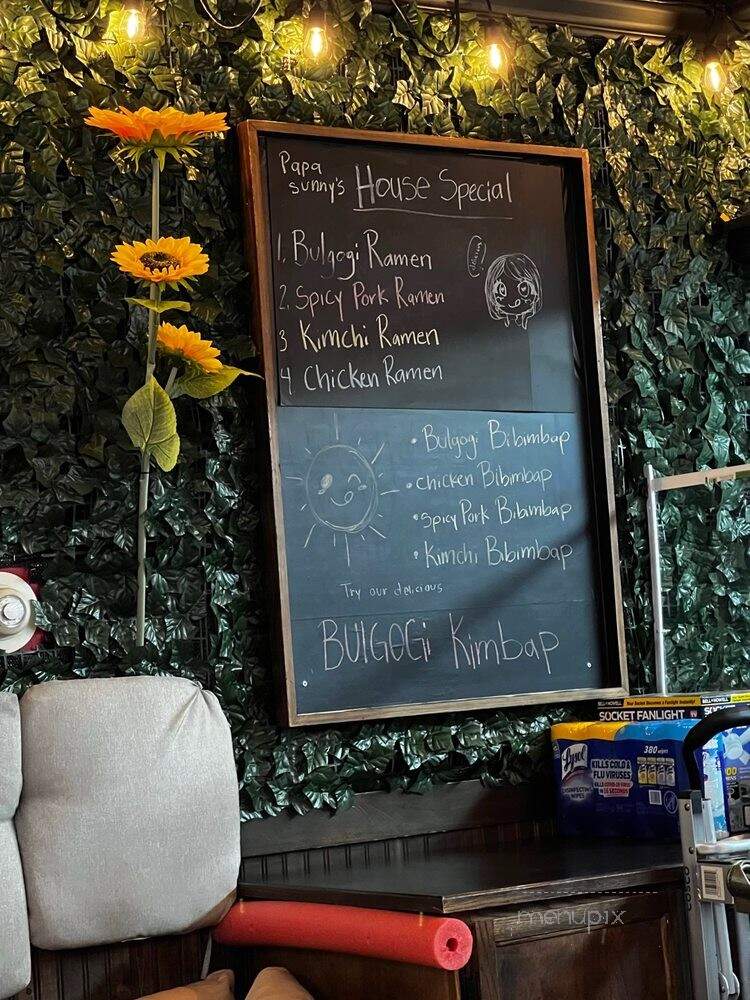 Papa
sunny's House Special
1. Bulgogi Ramen
2. Spicy Pork Ramen
3 Kimchi Ramen
4 Chicken Ramen
• Bulgogi Bibimbap
• chicken Bibimbap
• Spicy Pork Bibimbap
• Kimchi Bibimbap
Try our delicious
BUlGOGi Kimbap
SOCKET FANLIGHT
380 wipes
Lysol
KILLS COLD &
FLU VIRUSES
menupix